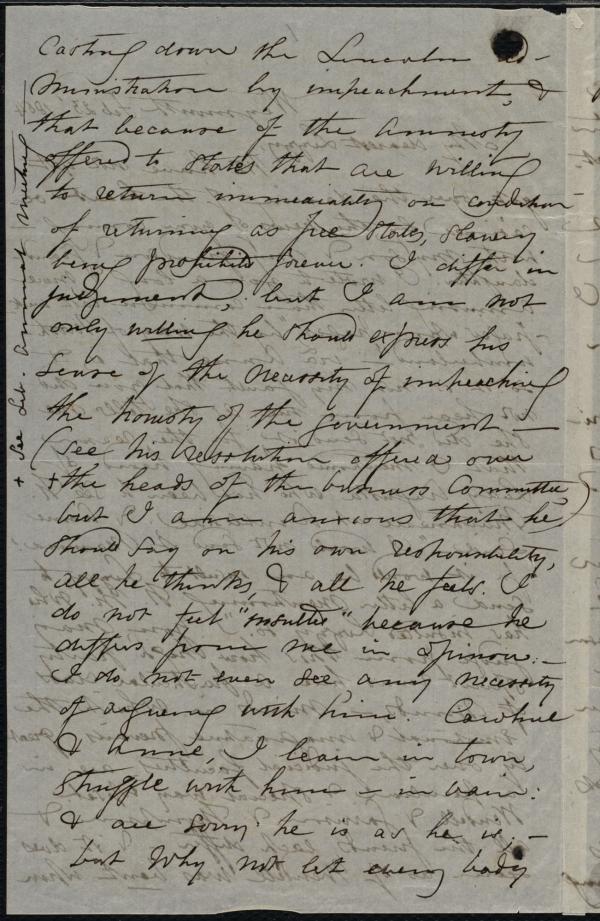 casting down the Lincoln ad-
ministration by impeachment, &
that because of the Amnesty
offered to States that are willing
to return immediately on condition
of returning as free States, slavery
being prohibited forever. I differ in
judgement, but I am not
only willing he should express his
sense of the necessity of impeaching
the honesty of the government —
(see his resolution offered over
+ the heads of the business Committee)
but I am anxious that he
should say on his own responsibility,
all he thinks, & all he feels. I
do not feel "insulted" because he
differs from me in opinion. —
I do not even see any necessity
of arguing with him. Caroline
& Annie, I learn in town,
struggle with him – in vain:
& are sorry he is as he is, —
but why not let every body
+ See Lib. Annual Meeting